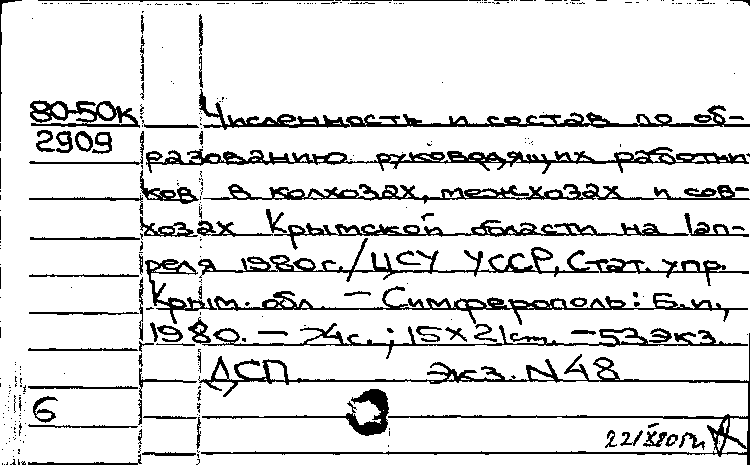 80-50к Численность и состав по об-
2909 разованию руководящих работни
ков в колхозах, межхозах и сов-
хозах Крымской области на 1 ап-
реля 1980г./ЦСУ УССР, Стат. упр.
Крым. обл. — Симферополь: Б.и.,
1980. — 74с.; 15×21см. — 53 экз.
ДСП экз. N48
6